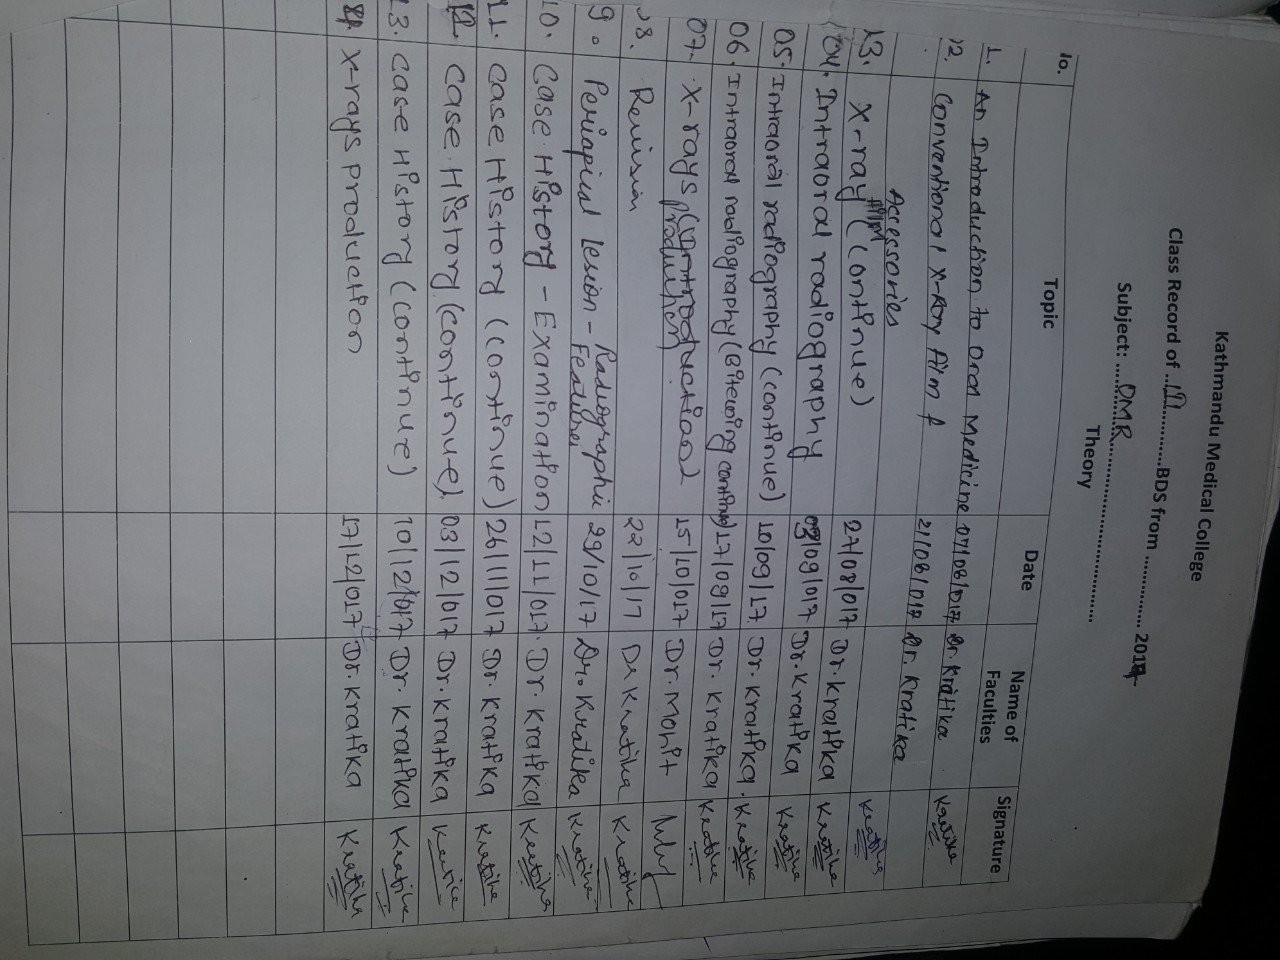 Kathmandu Medical College
Class Record of .. BDS from ............. 2017
Subject: ..... OMR ...............................
Theory
lo. Topic Date Name of Faculties Signature
1. An Introduction to Oral Medicine 07/08/017 Dr. Kratika Kratika
02. Conventional X-Ray film & Accessories 21/08/017 Dr. Kratika Kratika
X-ray film (continue) 27/08/017 Dr. Kratika Kratika
04. Intraoral radiography 03/09/017 Dr. Kratika Kratika
05. Intraoral radiography (continue) 10/09/17 Dr. Kratika Kratika
06. Intraoral radiography (Bitewing continue) 17/09/17 Dr. Kratika Kratika
07. X-rays (Introduction) production 15/10/017 Dr. Mohit
08. Revision 22/10/17 Dr Kratika Kratika
9. Periapical lesion - Radiographic Features 29/10/17 Dr. Kratika Kratika
10. Case History - Examination 12/11/017. Dr. Kratika Kratika
11. Case History (continue) 26/11/017 Dr. Kratika Kratika
12. Case History (continue) 03/12/017 Dr. Kratika Kratika
13. Case History (continue) 10/12/017 Dr. Kratika Kratika
X-rays production 17/12/017 Dr. Kratika Kratika